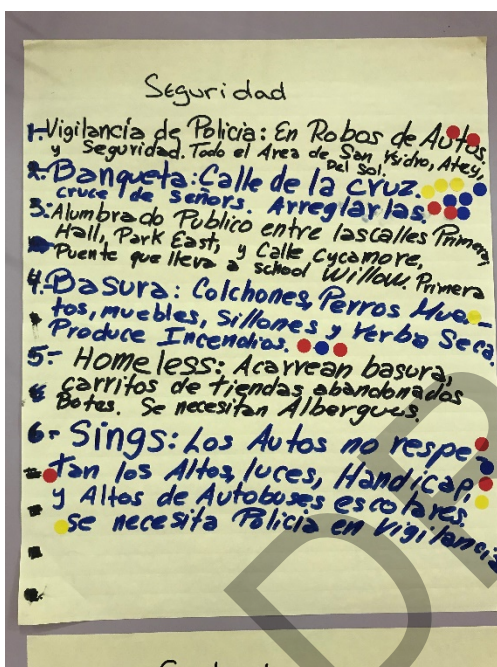 Seguridad
1-Vigilancia de Policia: En Robos de Autos,
y Seguridad. Todo el Area de San Ysidro, Atey,
Del Sol.
2-Banqueta: Calle de la cruz.
cruce de señors. Arreglarlas.
3-Alumbrado Publico entre lascalles Primera,
Hall, Park East, y Calle Cycamore,
Puente que lleva a school Willow. Primera
4-Basura: Colchones, Perros Muer-
tos, muebles, Sillones y Yerba Seca.
Produce Incendios.
5- Homeless: Acarrean basura,
carritos de tiendas abandonados
Botes. Se necesitan Albergues.
6- Sings: Los Autos no respe-
tan los Altos, luces, Handicap,
y Altos de Autobuses escolares.
se necesita Policia en vigilancia